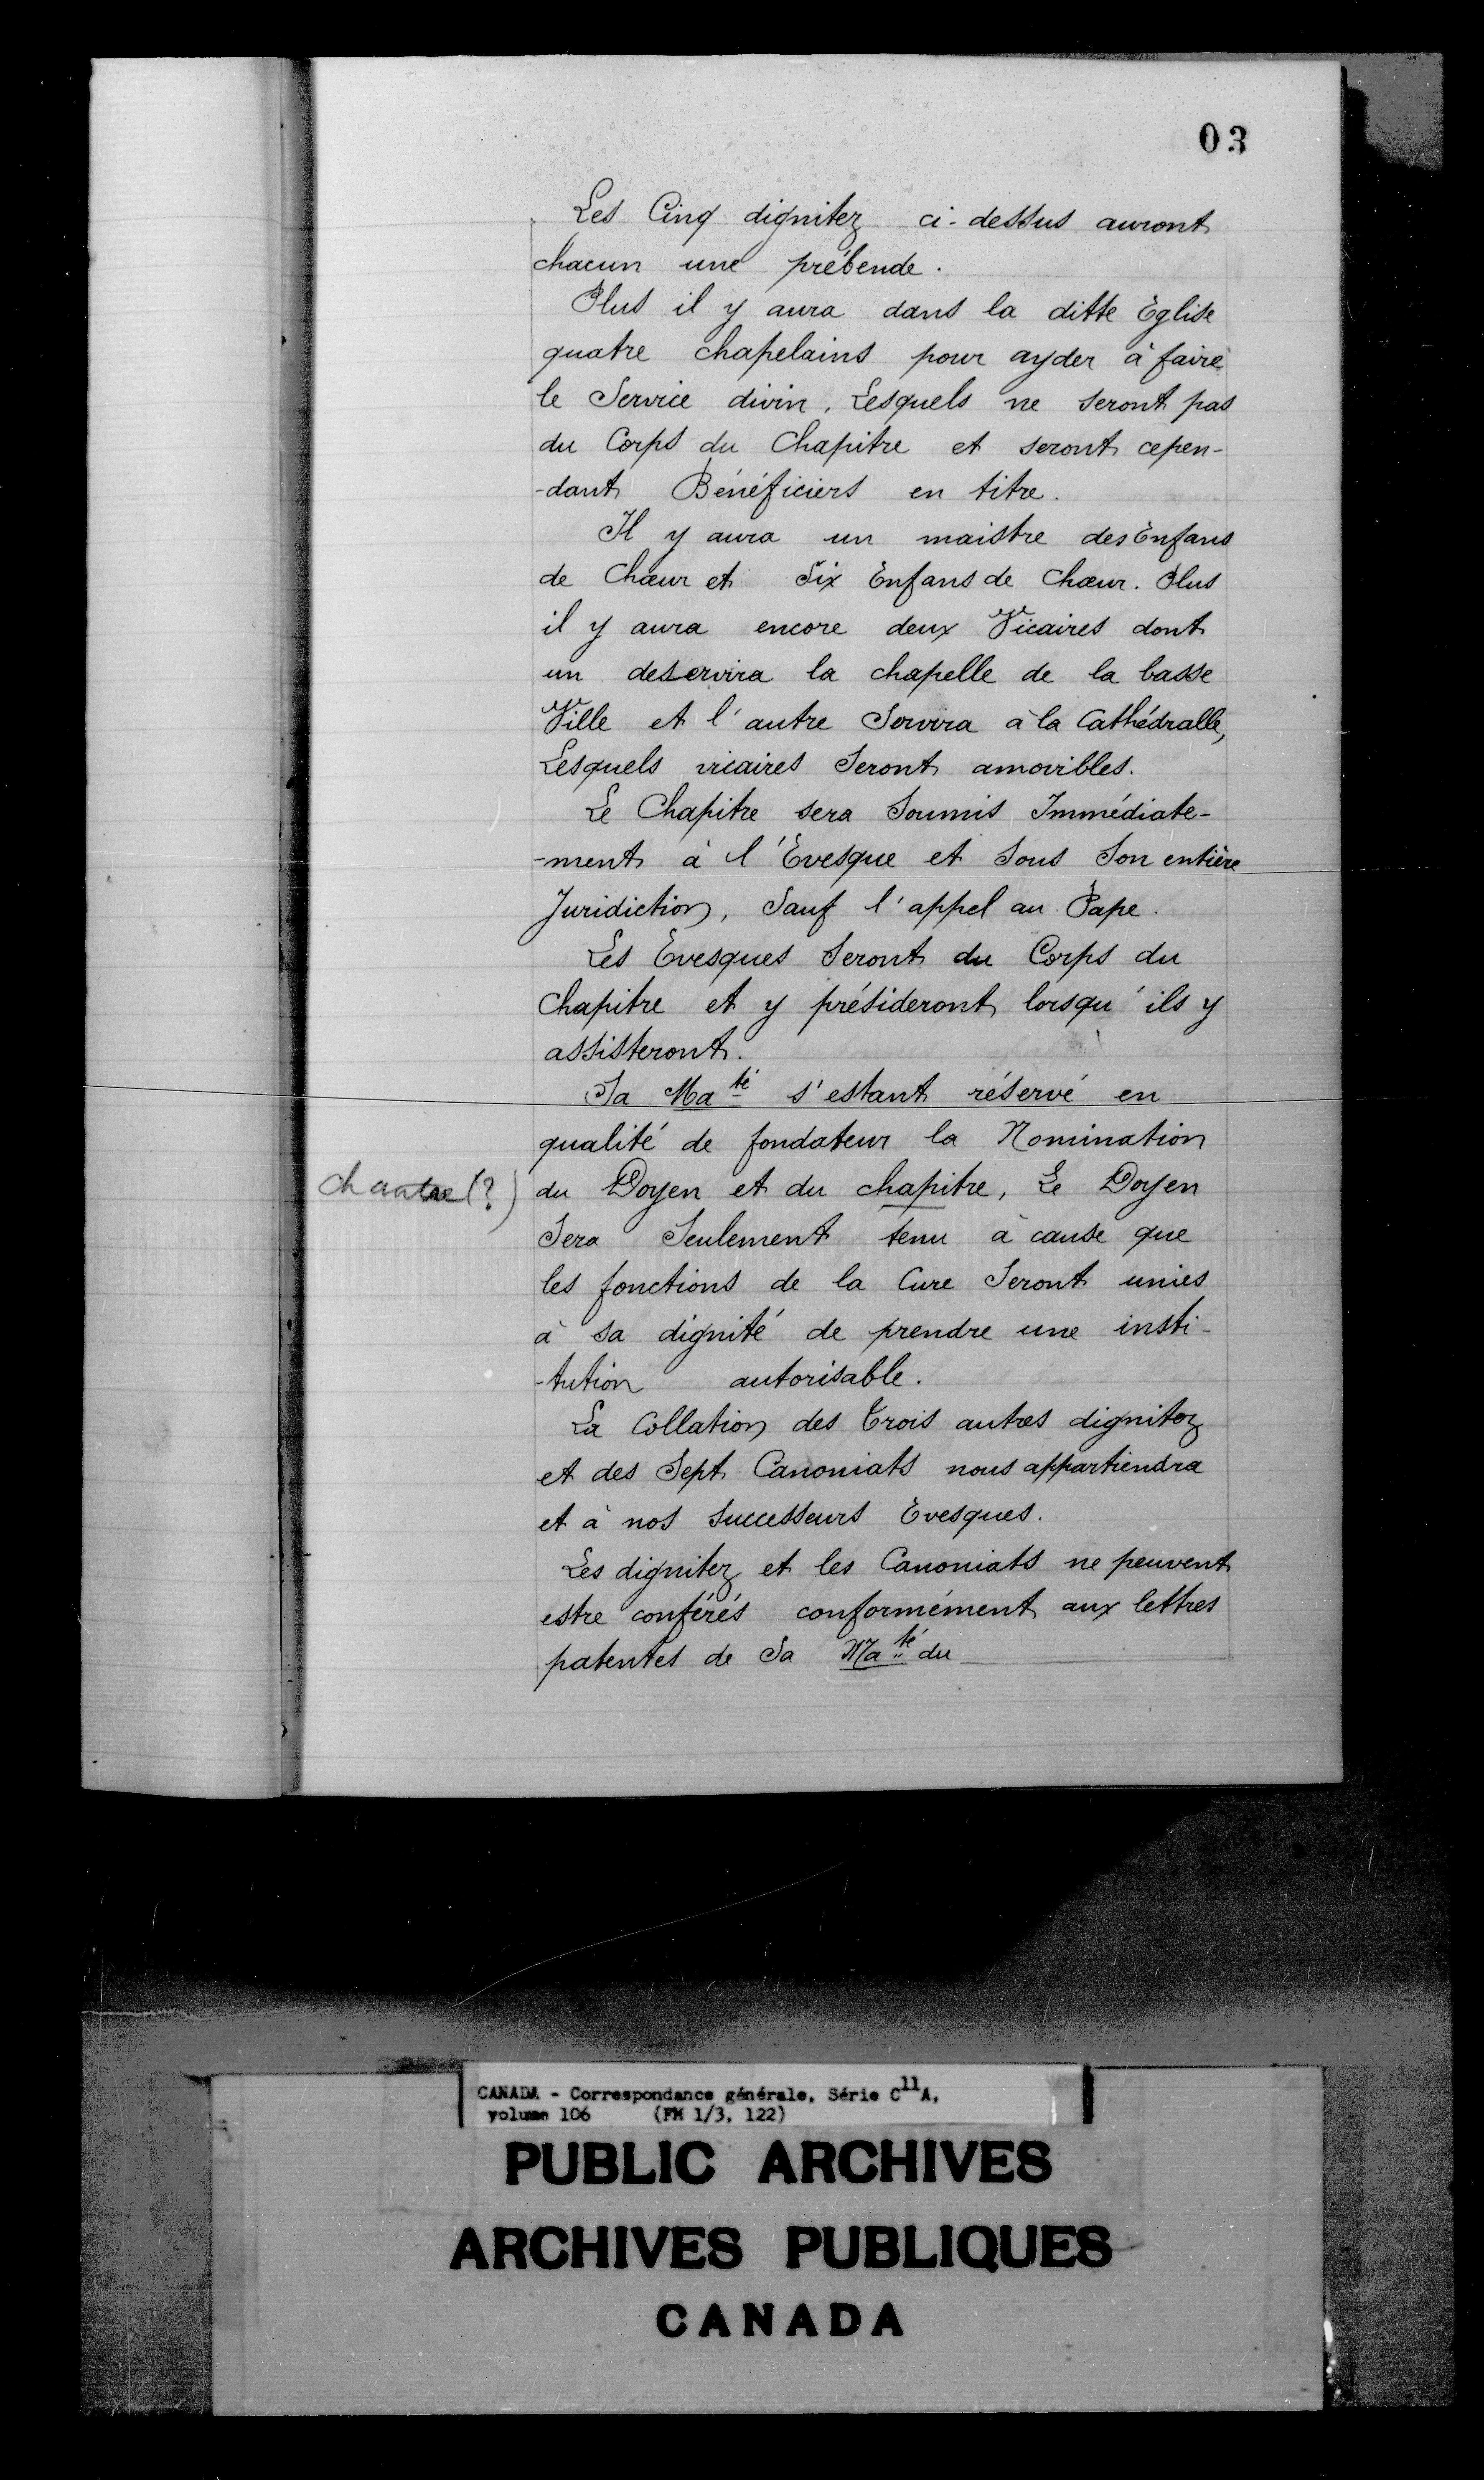 03
Les Cinq dignitez ci-dessus auront
chacun une prébende.
Plus il y aura dans la ditte Eglise
quatre chapelains pour ayder à faire
le Service divin, Lesquels ne seront pas
du Corps du Chapitre et seront cepen-
-dant Bénéficiers en titre.
Il y aura un maistre des Enfans
de Chœur et Six Enfans de Chœur. Plus
il y aura encore deux Vicaires dont
un deservira la chapelle de la basse
Ville et l'autre Servira à la Cathédralle,
Lesquels vicaires Seront amovibles.
Le Chapitre sera Soumis Immédiate-
-ment à l'Evesque et Sous Son entière
Juridiction, Sauf l'appel au Pape.
Les Evesques Seront du Corps du
Chapitre et y présideront lorsqu'ils y
assisteront.
Sa Ma té s'estant réservé en
qualité de fondateur la Nomination
chantre (?) du Doyen et du chapitre, Le Doyen
Sera Seulement tenu à cause que
les fonctions de la Cure Seront unies
à sa dignité de prendre une insti-
-tution autorisable.
La Collation des Trois autres dignitez
et des Sept Canoniats nous appartiendra
et à nos Successeurs Evesques.
Les dignitez et les Canoniats ne peuvent
estre conférés conformément aux lettres
patentes de Sa Ma té du
CANADA - Correspondance générale, Série C11A,
volume 106 (FM 1/3, 122)
PUBLIC ARCHIVES
ARCHIVES PUBLIQUES
CANADA